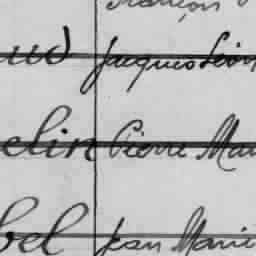 François
ud Jacques Léon
elin Pierre Mar
bel Jean Marie